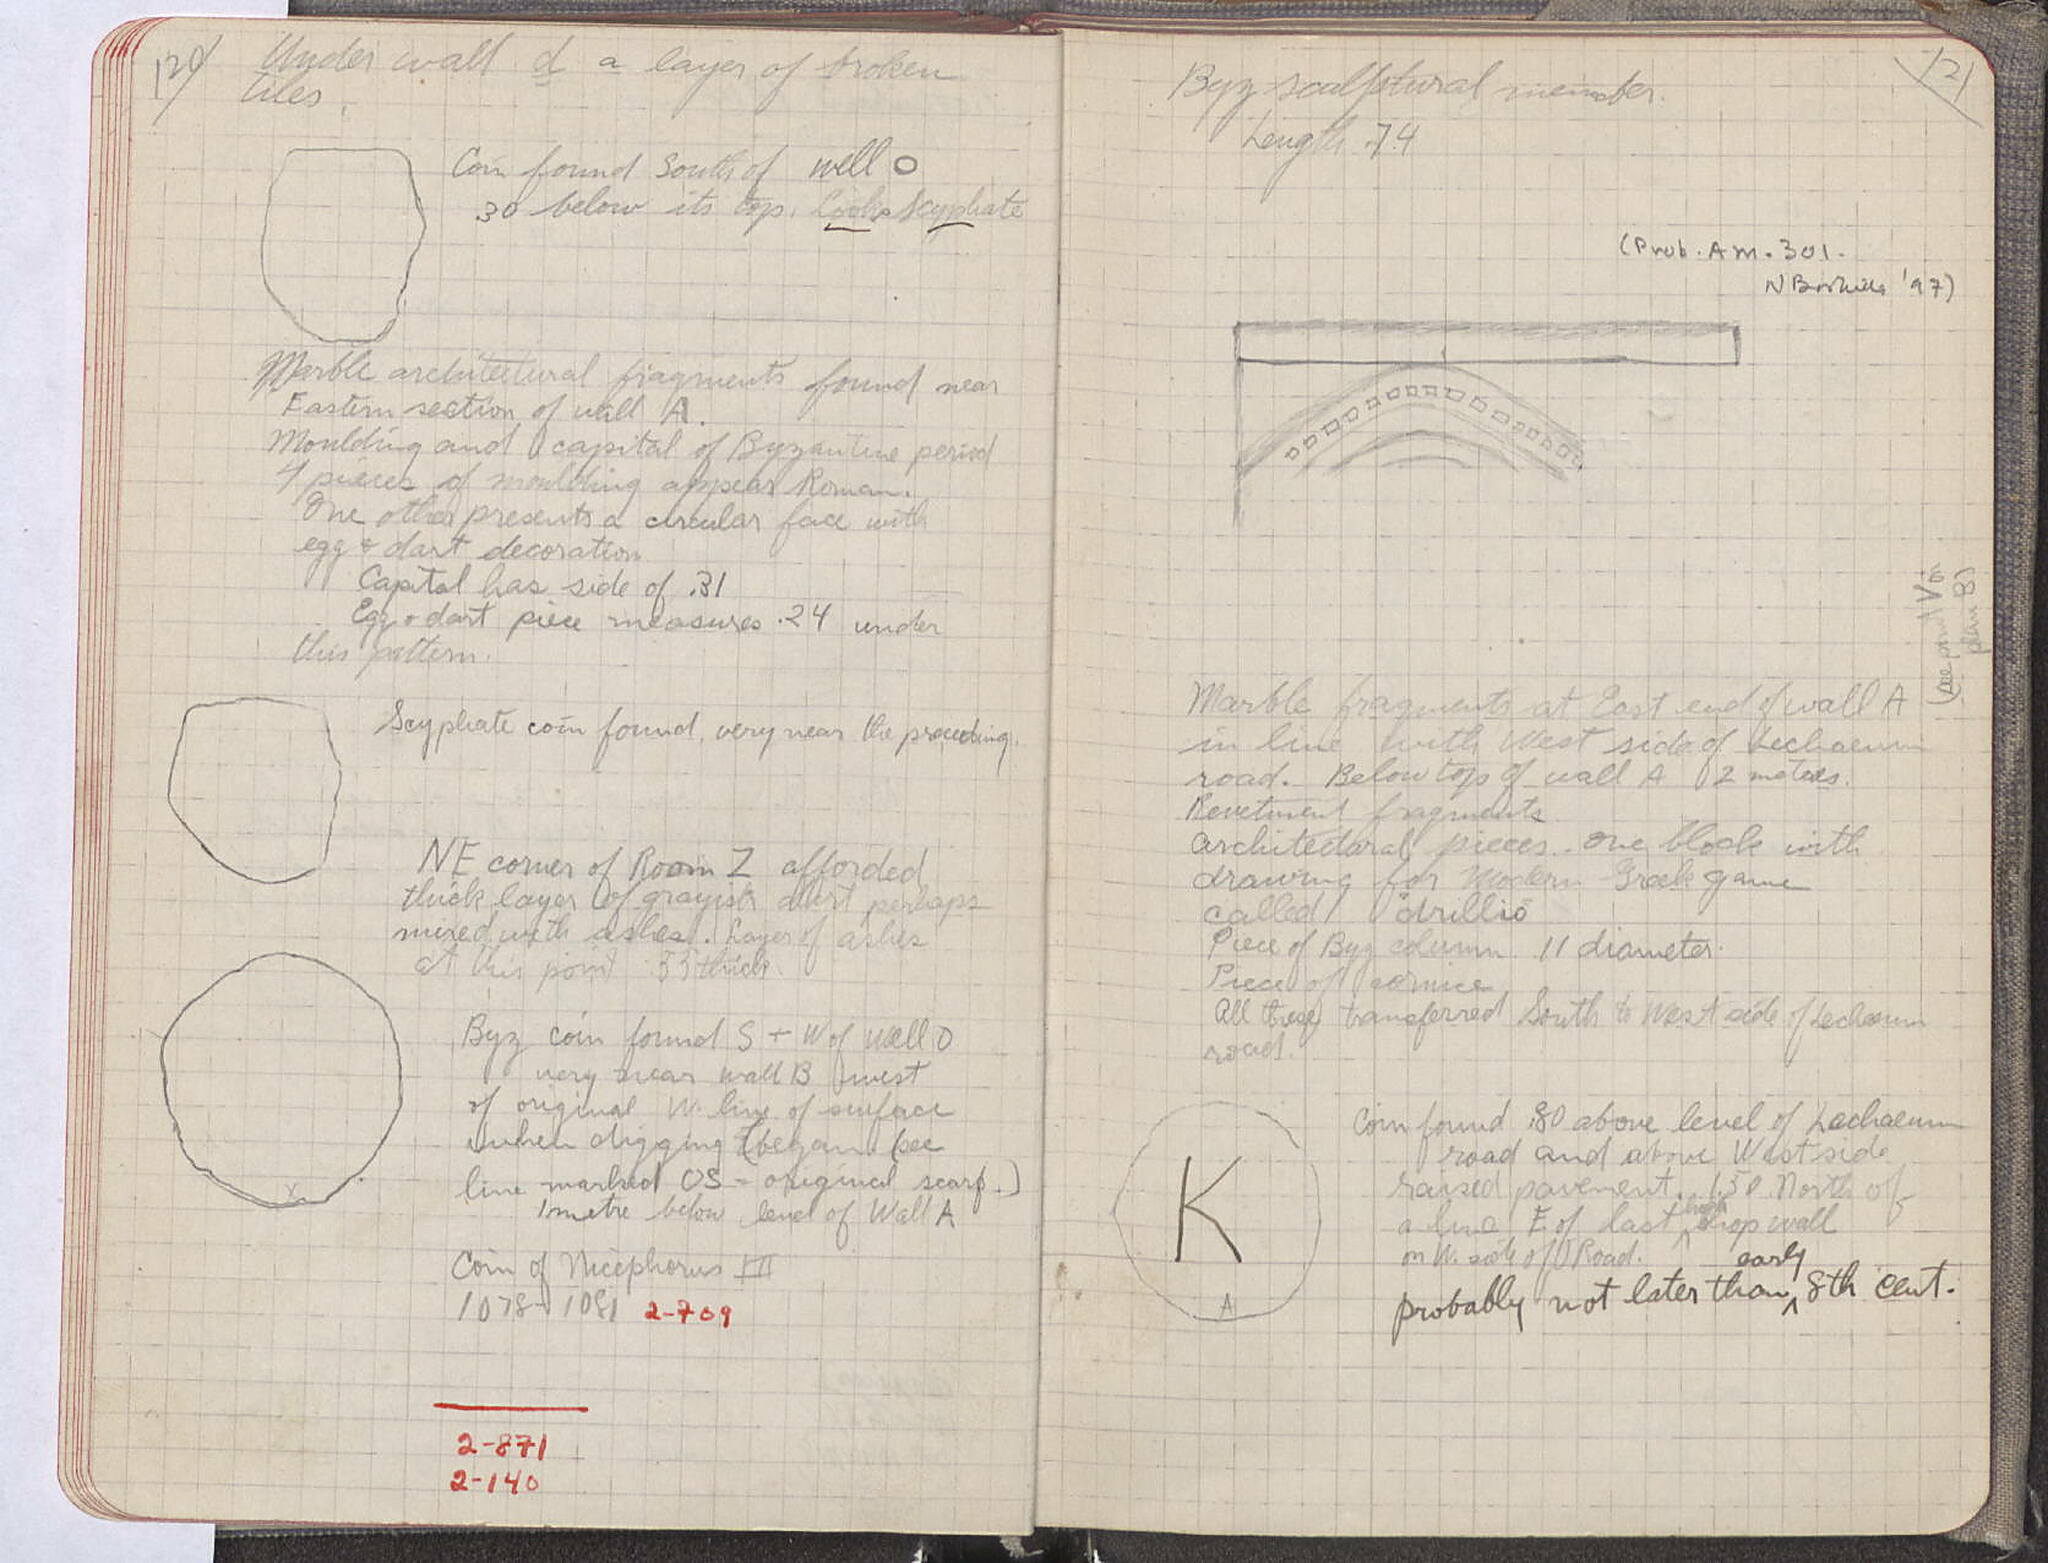 120
Under wall d a layer of broken
tiles.
Coin found South of well O
.30 below its top. Looks Scyphate
Marble architectural fragments found near
Eastern section of wall A.
Moulding and capital of Byzantine period
4 pieces of moulding appear Roman.
One other presents a circular face with
egg + dart decoration
Capital has side of .31
Egg + dart piece measures .24 under
this pattern.
Scyphate coin found very near the preceding.
NE corner of Room Z afforded
thick layer of grayish dirt perhaps
mixed with ashes. Layer of ashes
at this point .55 thick.
Byz coin found S + W of well O
very near wall B west
of original W. line of surface
when digging began (see
line marked OS - original scarp.)
1 metre below level of Wall A
X
Coin of Nicephorus III
1078-1081 2-709
2-871
2-140
121
Byz sculptural member.
Length .74
(Prob. AM. 301.
N Bookidis '97)
(see point V on
plan B)
Marble fragments at East end of wall A
in line with West side of Lechaeum
road. Below top of wall A 2 metres.
Revetment fragments
architectural pieces. one block with
drawing for Modern Greek game
called "drillio
Piece of Byz column .11 diameter.
Piece of cornice
All these transferred South to West side of Lechaeum
road.
Coin found .80 above level of Lechaeum
road and above West side
raised pavement. 1.50 North of
a line E of last shop wall
on W. side of Road.
K
A
probably not later than early 8th cent.